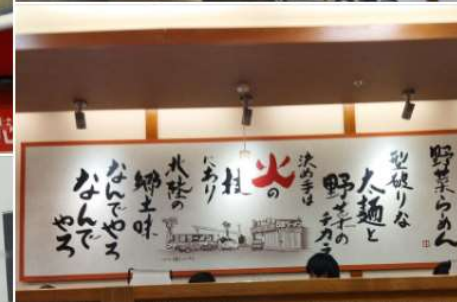 野菜らーめん
型破りな
太麺と
野菜の
チカラ
決め手は
火の
柱
にあり
北陸の
郷土味
なんでやろ
なんで
やろ